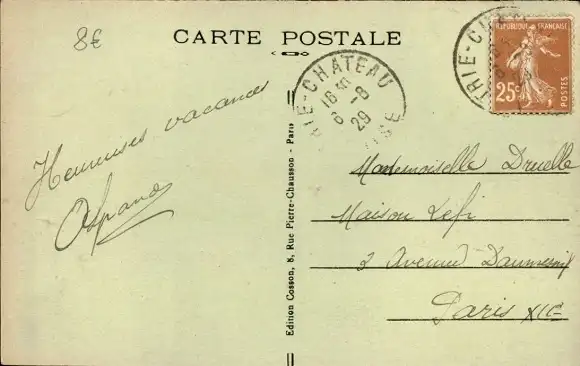 8€
CARTE POSTALE
RIE-CHATEAU
16 30
6 -8
29
TRIE-CH
REPUBLIQUE FRANÇAISE
25c
POSTES
Heureuses vacances
Edition Cosson, 8, Rue Pierre-Chausson - Paris
Mademoiselle Druelle
Maison
3 Avenue Daumesnil
Paris XIIe